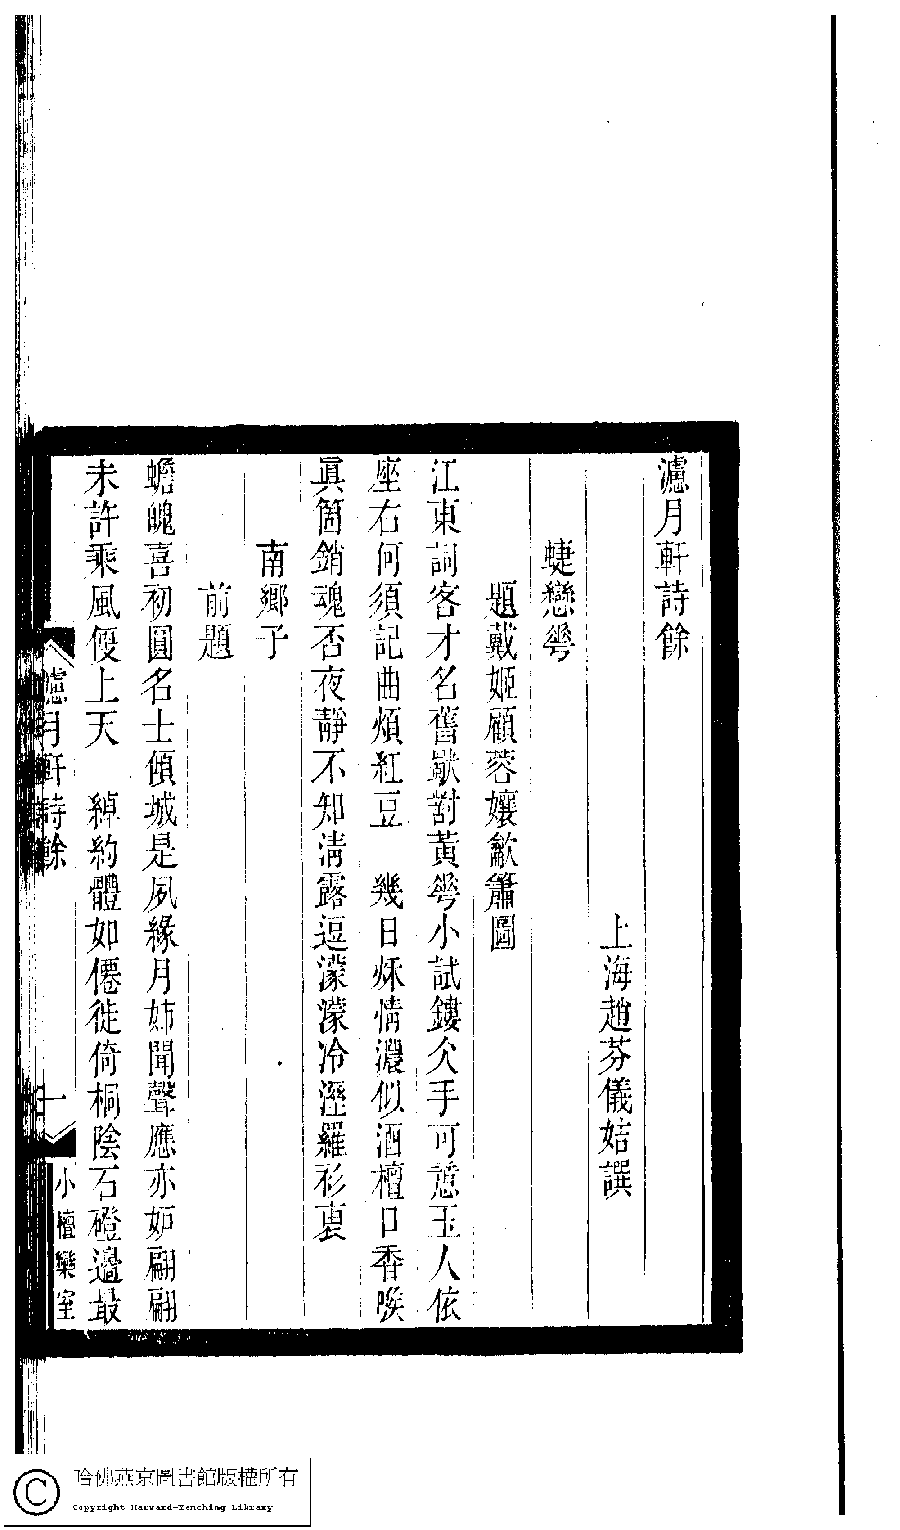 濾月軒詩餘
上海趙芬儀姞譔
蜨戀花
題戴姬顧蓉孃龡簫圖
江東詞客才名舊歗對黃花小試鏤仌手可意玉人依
座右何須記曲煩紅豆　幾日秌情濃似酒檀口香喉
眞箇銷魂否夜靜不知淸露逗濛濛冷溼羅衫裏
南鄉子
前題
蟾魄喜初圓名士傾城是夙緣月姊聞聲應亦妒翩翩
未許乘風便上天　綽約體如僊徙倚桐陰石磴邊最
濾月軒詩餘
一
小檀欒室
哈佛燕京圖書館版權所有
Copyright Harvard-Yenching Library